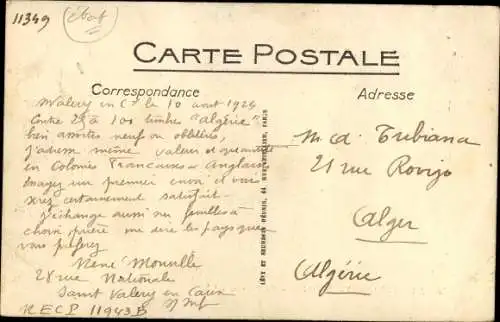 11349
CARTE POSTALE
Correspondance
Adresse
St Valery en Cx le 10 aout 1924
Contre 25 à 100 timbres "Algérie"
bien assortis neufs ou oblitérés,
j'adresse même valeur et quantité
en Colonies Françaises et Anglaises
un premier envoi et vous
serez certainement satisfait
J'échange aussi sur feuilles à
choix prière me dire les pays que
vous préférez
René
28 rue Nationale
Saint Valery en Caux
RECP 11943 B
LÉVY ET NEURDEIN RÉUNIS, 44 PARIS
Md. Tubiana
21 rue Rovigo
Alger
Algérie